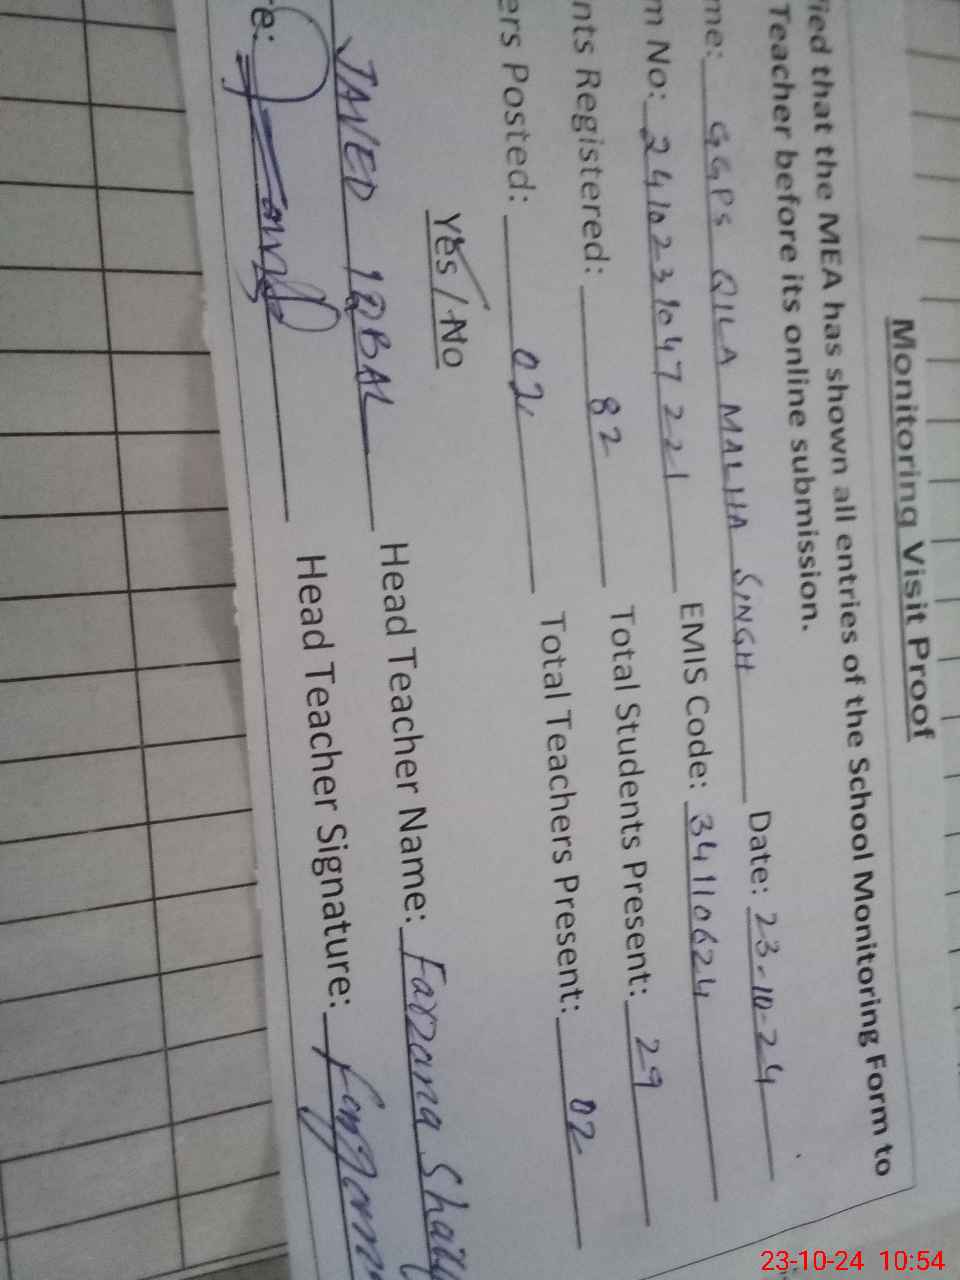 Monitoring Visit Proof
fied that the MEA has shown all entries of the School Monitoring Form to
Teacher before its online submission.
me: GGPS QILA MALHA SINGH Date: 23-10-24
m No: 2410231047221 EMIS Code: 34110624
nts Registered: 82 Total Students Present: 29
ers Posted: 02 Total Teachers Present: 02
Yes / No
JAVED IQBAL Head Teacher Name: Farzana
re: Head Teacher Signature:
23-10-24 10:54